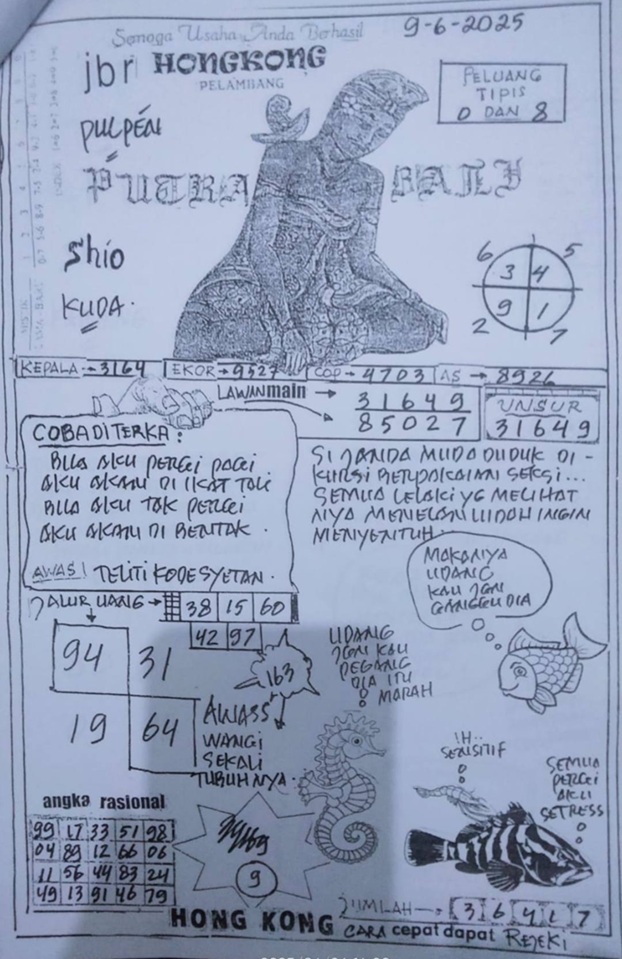 Semoga Usaha Anda Berhasil
9-6-2025
jbr HONGKONG
PELAMBANG
PELUANG
TIPIS
0 DAN 8
PULPEN
PUTRA BALI
Shio
KUDA
6 5
3 4
9 1
2 7
KEPALA → 3164 EKOR → 9527 COP → 4703 AS → 8926
LAWAN main → 31649
85027
UNSUR
31649
COBA DITERKA :
BILA AKU PERGI PAGI
AKU AKAN DI IKAT TALI
BILA AKU TAK PERGI
AKU AKAN DI BENTAK .
AWAS! TELITI KODE SYETAN .
SI JANDA MUDA DUDUK DI -
KURSI BERPAKAIAN SEKSI ...
SEMUA LELAKI YG MELIHAT
NYA MENELAN LUDAH INGIN
MENYENTUH.
MAKANYA
UDANG
KAU JGN
GANGGU DIA
JALUR UANG → 38 15 60
42 97
94 31
19 64
163
AWASS
WANGI
SEKALI
TUBUHNYA .
UDANG
JGN KAU
PEGANG
DIA ITU
MARAH
IH..
SENSITIF
SEMUA
PERGI
AKU
SETRESS
angka rasional
99 17 33 51 98
04 89 12 66 06
11 56 44 83 24
49 13 91 46 79
9
JUMLAH → 3 6 4 1 7
HONG KONG CARA cepat dapat REJEKI